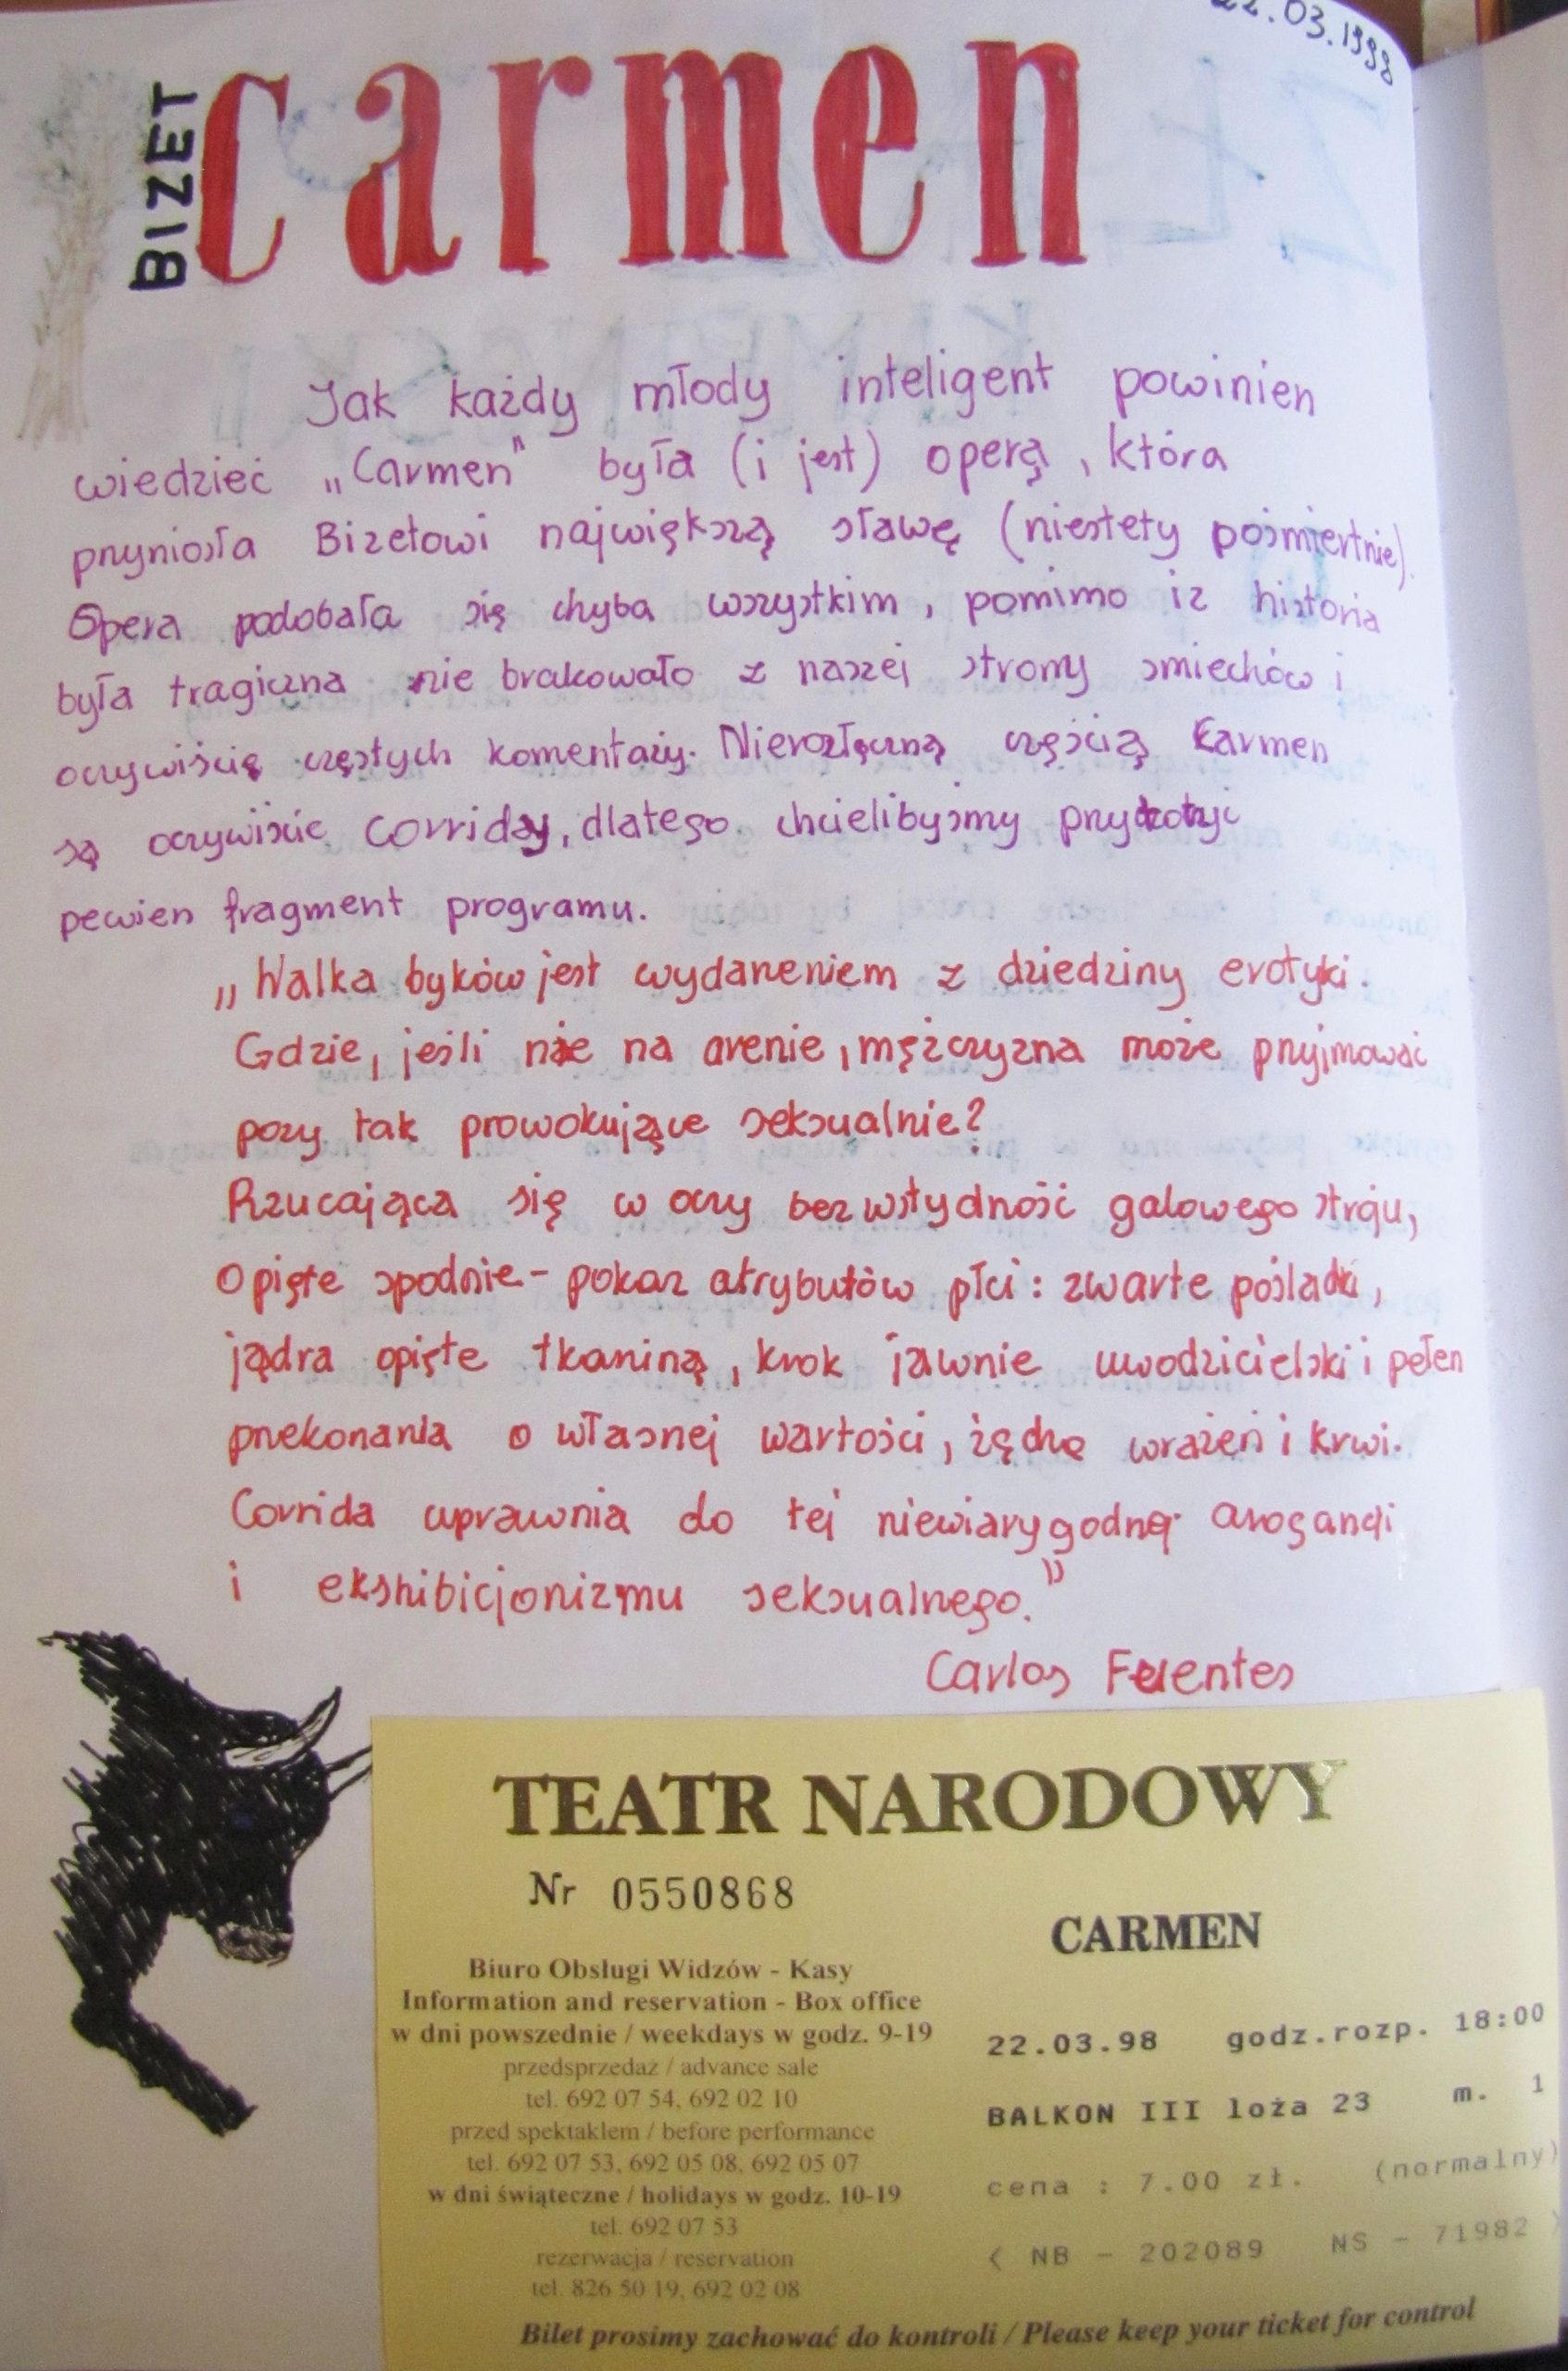 22.03.1998
BIZET
carmen
Jak każdy młody inteligent powinien
wiedzieć „Carmen" była (i jest) operą, która
przyniosła Bizetowi największą sławę (niestety pośmiertnie).
Opera podobała się chyba wszystkim, pomimo iż historia
była tragiczna nie brakowało z naszej strony śmiechów i
oczywiście częstych komentaży. Nierozłączną częścią Carmen
są oczywiście corridy, dlatego chcielibyśmy przytoczyć
pewien fragment programu.
„Walka byków jest wydarzeniem z dziedziny erotyki.
Gdzie, jeśli nie na arenie, mężczyzna może przyjmować
pozy tak prowokujące seksualnie?
Rzucająca się w oczy bezwstydność galowego stroju,
opięte spodnie - pokaz atrybutów płci: zwarte pośladki,
jądra opięte tkaniną, krok jawnie uwodzicielski i pełen
przekonania o własnej wartości, żądne wrażeń i krwi.
Corrida uprawnia do tej niewiarygodnej arogancji
i ekshibicjonizmu seksualnego."
Carlos Fuentes
TEATR NARODOWY
Nr 0550868
CARMEN
Biuro Obsługi Widzów - Kasy
Information and reservation - Box office
w dni powszednie / weekdays w godz. 9-19
przedsprzedaż / advance sale
tel. 692 07 54, 692 02 10
przed spektaklem / before performance
tel. 692 07 53, 692 05 08, 692 05 07
w dni świąteczne / holidays w godz. 10-19
tel. 692 07 53
rezerwacja / reservation
tel. 826 50 19, 692 02 08
22.03.98 godz.rozp. 18:00
BALKON III loża 23 m. 1
cena : 7.00 zł. (normalny)
( NB - 202089 NS - 71982 )
Bilet prosimy zachować do kontroli / Please keep your ticket for control